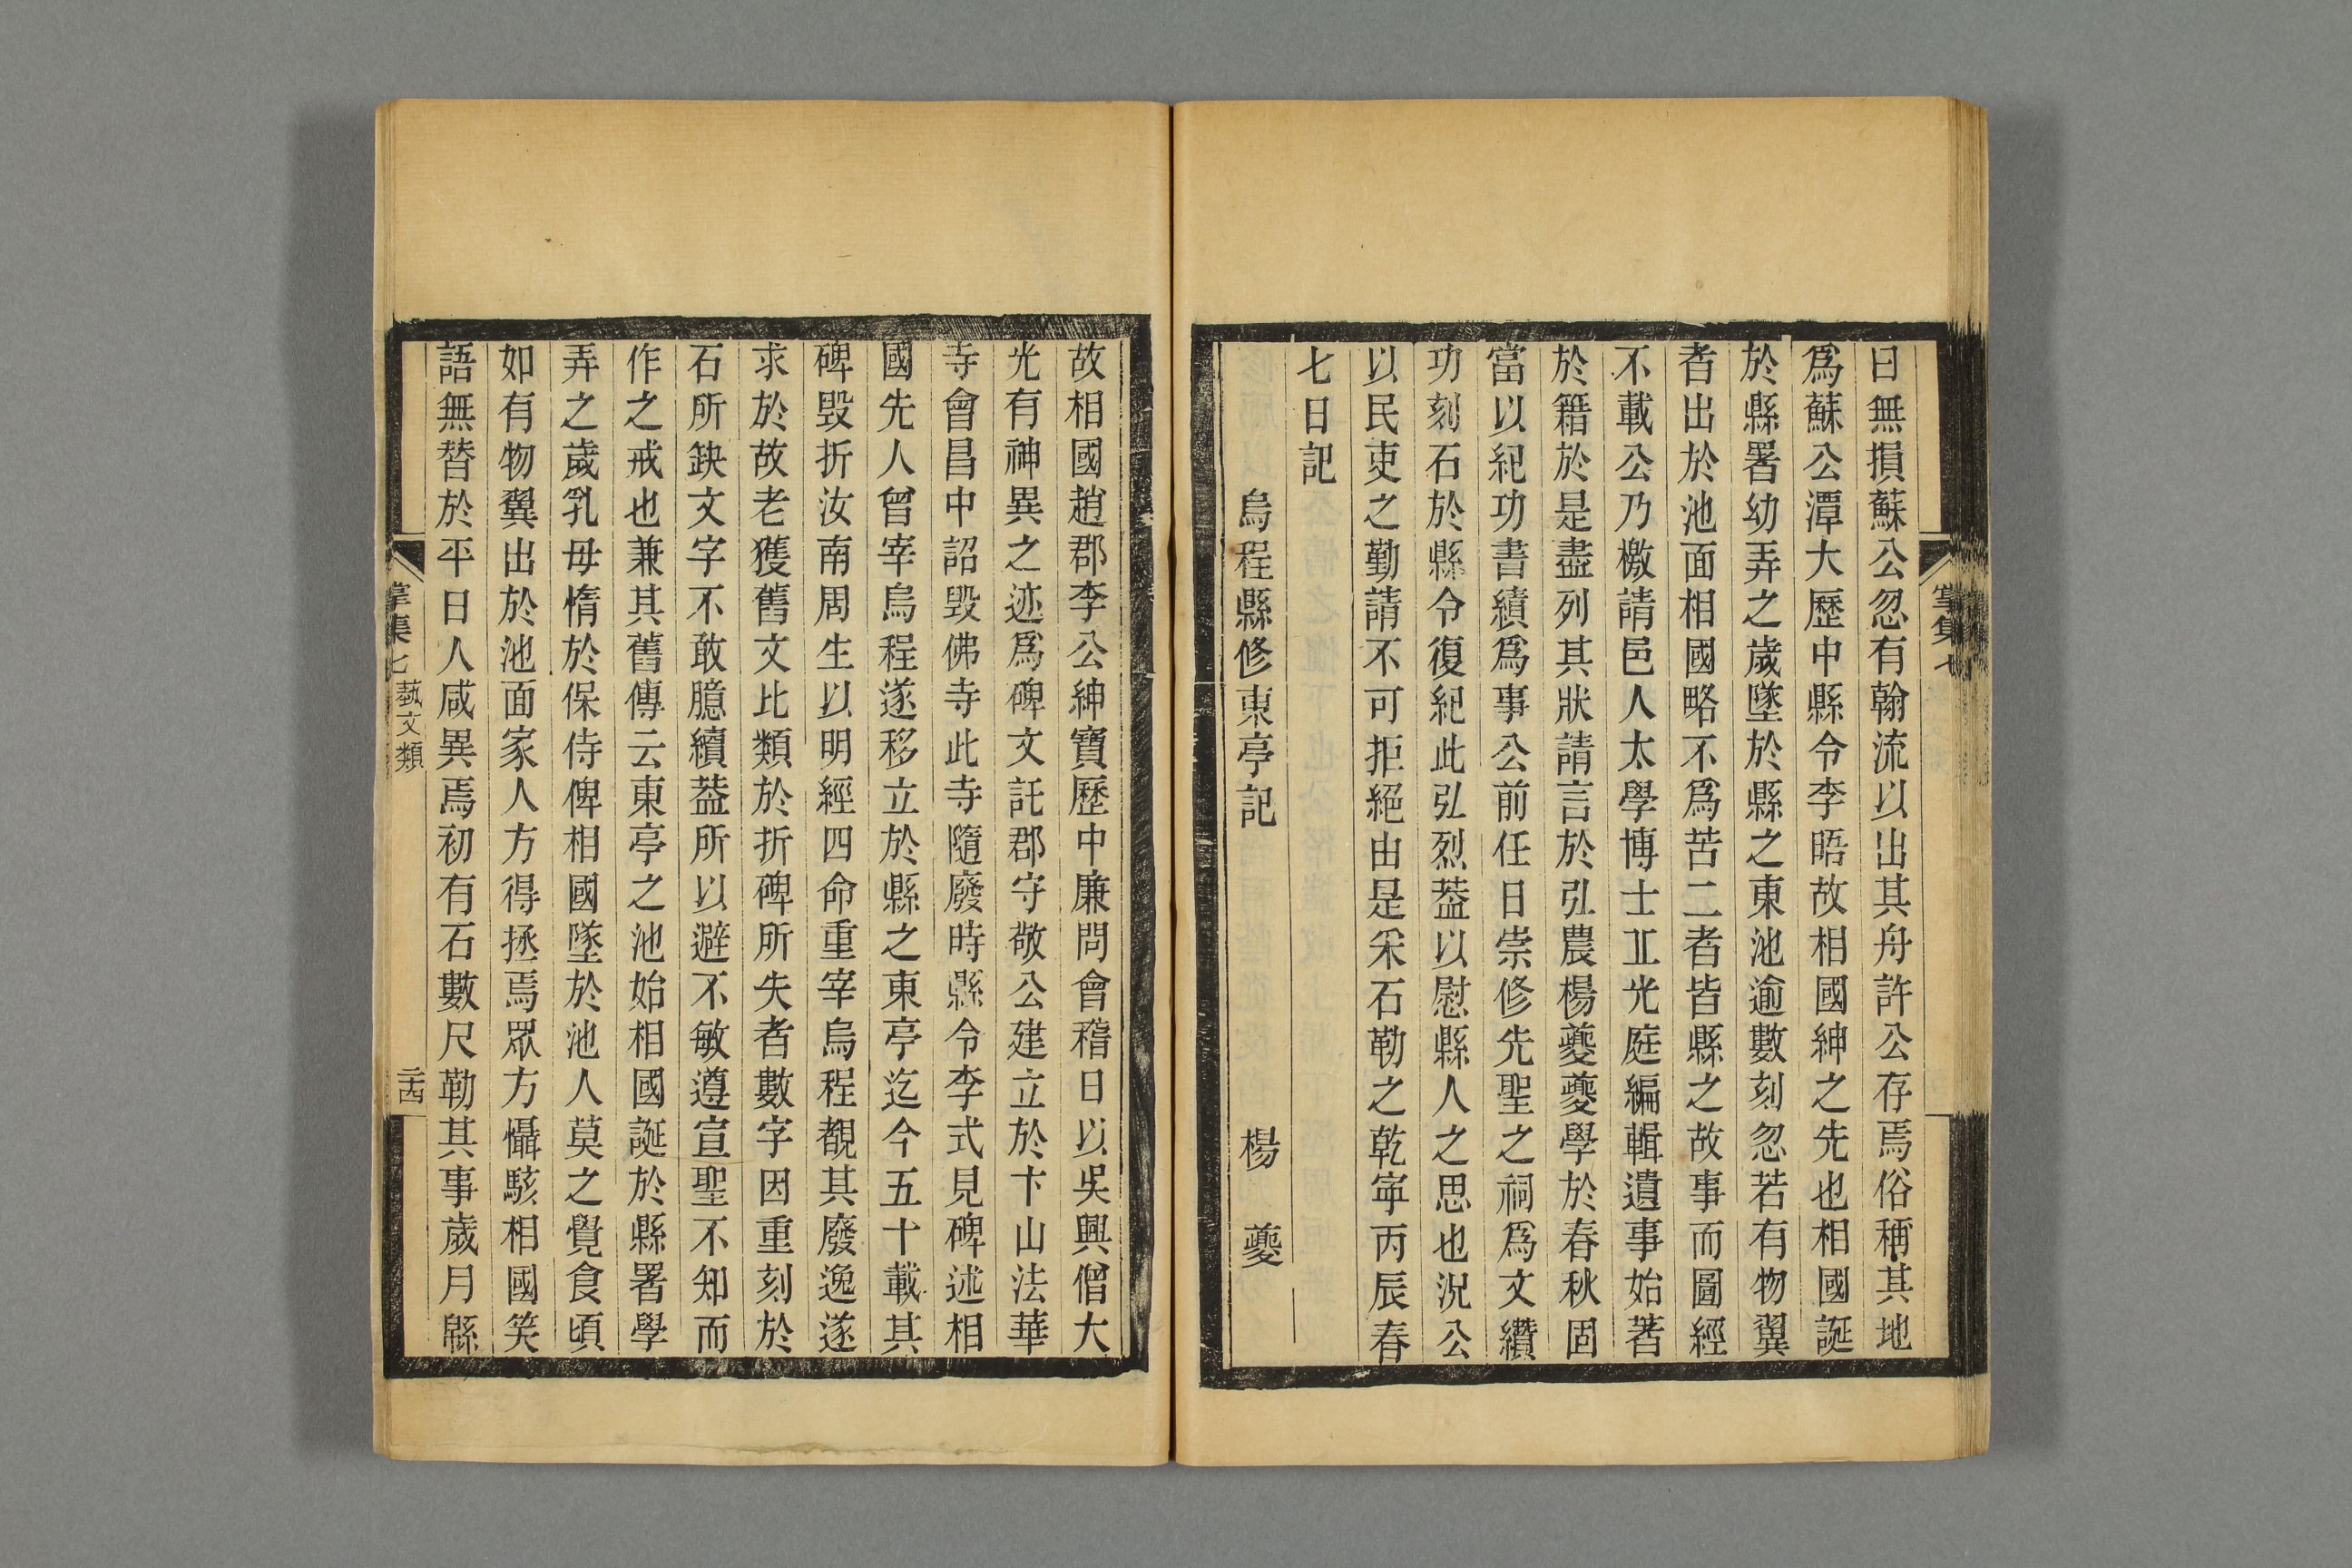 曰無損蘇公忽有翰流以出其舟許公存焉俗稱其地
爲蘇公潭大歷中縣令李晤故相國紳之先也相國誕
於縣署幼弄之歲墜於縣之東池逾數刻忽若有物翼
者出於池面相國略不爲苦二者皆縣之故事而圖經
不載公乃檄請邑人太學博士丘光庭編輯遺事始著
於籍於是盡列其狀請言於弘農楊夔夔學於春秋固
當以紀功書績爲事公前任日崇修先聖之祠爲文纘
功刻石於縣令復紀此弘烈葢以慰縣人之思也況公
以民吏之勤請不可拒絕由是采石勒之乾寧丙辰春
七日記
烏程縣修東亭記 楊夔
故相國趙郡李公紳寶歷中廉問會稽日以吳興僧大
光有神異之迹爲碑文託郡守敬公建立於卞山法華
寺會昌中詔毀佛寺此寺隨廢時縣令李式見碑述相
國先人曾宰烏程遂移立於縣之東亭迄今五十載其
碑毀折汝南周生以明經四命重宰烏程覩其廢逸遂
求於故老獲舊文比類於折碑所失者數字因重刻於
石所缺文字不敢臆續葢所以避不敏遵宣聖不知而
作之戒也兼其舊傳云東亭之池始相國誕於縣署學
弄之歲乳母惰於保侍俾相國墜於池人莫之覺食頃
如有物翼出於池面家人方得拯焉眾方懾駭相國笑
語無替於平日人咸異焉初有石數尺勒其事歲月緜
掌集七 藝文類 二十四
掌集七